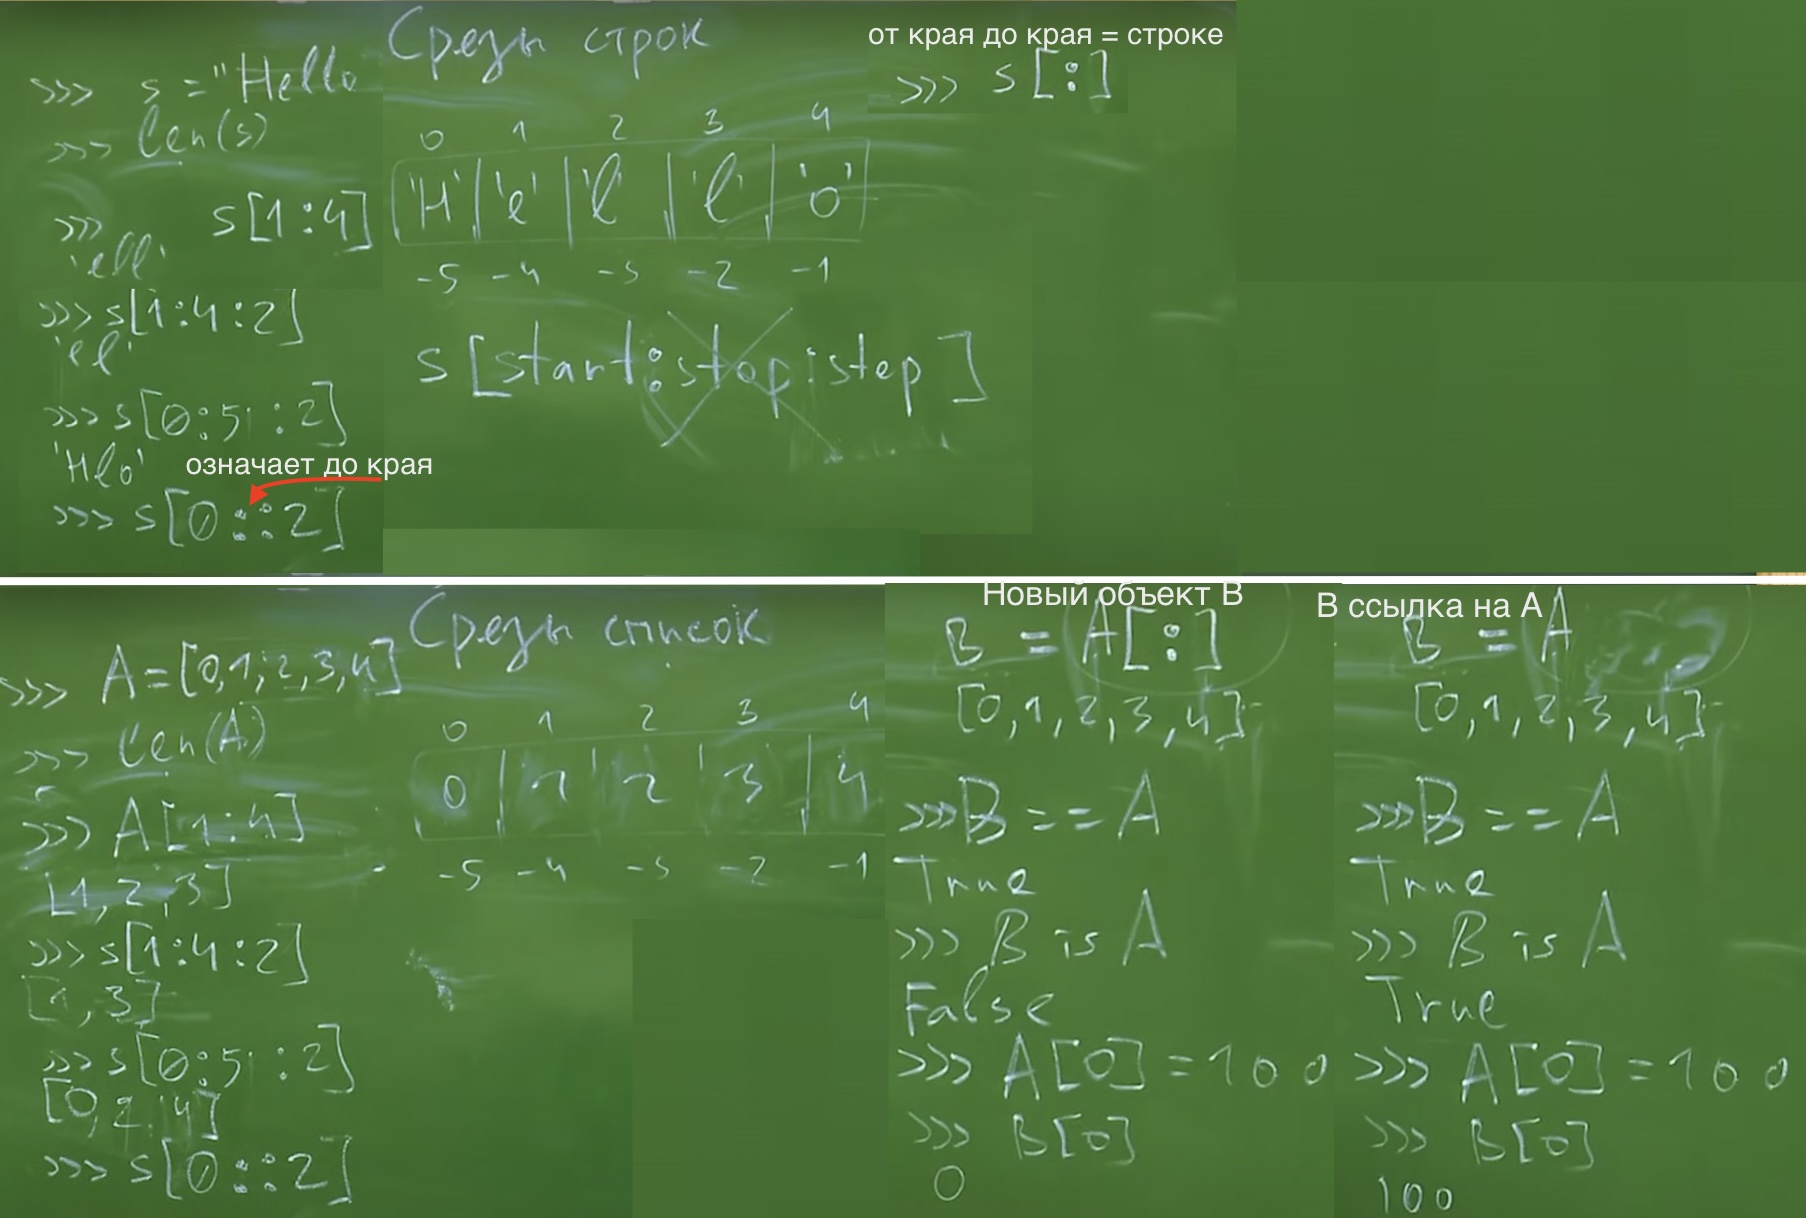 Срезы строк
>>> s = "Hello
>>> len(s)
>>> s[1:4]
'ell'
>>> s[1:4:2]
'el'
>>> s[0:5::2]
'Hlo'
означает до края
>>> s[0::2]
0 1 2 3 4
'H' 'e' 'l 'l' 'o'
-5 -4 -3 -2 -1
s[start:stop:step]
от края до края = строке
>>> s[:]
Срезы список
>>> A=[0,1,2,3,4]
>>> len(A)
>>> A[1:4]
[1,2,3]
>>> s[1:4:2]
[1,3]
>>> s[0:5::2]
[0,2,4]
>>> s[0::2]
0 1 2 3 4
0 1 2 3 4
-5 -4 -3 -2 -1
Новый объект B
B = A[:]
[0,1,2,3,4]
>>>B==A
True
>>> B is A
False
>>> A[0]=100
>>> B[0]
0
B ссылка на A
B = A
[0,1,2,3,4]
>>>B==A
True
>>> B is A
True
>>> A[0]=100
>>> B[0]
100